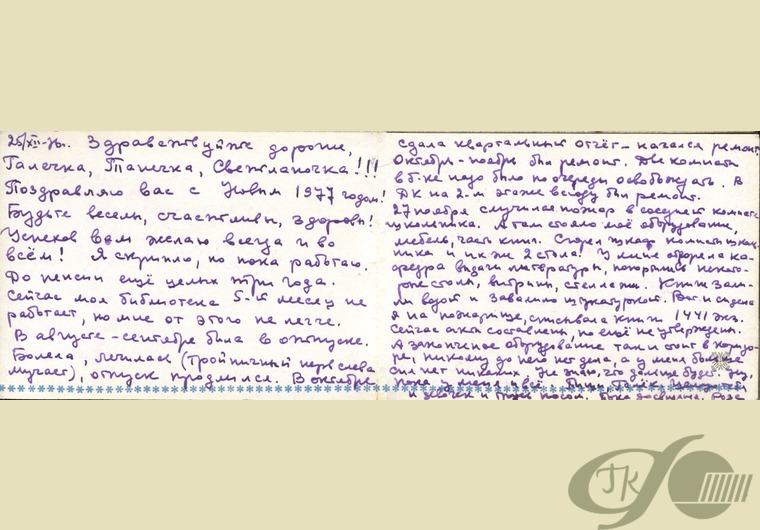 25/XII-76г. Здравствуйте дорогие,
Галечка, Танечка, Светланочка!!!
Поздравляю вас с Новым 1977 годом!
Будьте веселы, счастливы, здоровы!
Успехов вам желаю всегда и во
всём! Я скриплю, но пока работаю.
До пенсии ещё целых три года.
Сейчас моя библиотека 5-й месяц не
работает, но мне от этого не легче.
В августе-сентябре была в отпуске.
Болела, лечилась (тройничный нерв слева
мучает), отпуск продлился. В октябре
сдала квартальный отчёт - начался ремонт.
Октябрь-ноябрь был ремонт. Две комнаты
в б-ке надо было по очереди освобождать. В
ДК на 2-м этаже всюду был ремонт.
27 ноября случился пожар в соседней комнате
художника. А там стояло моё оборудование,
мебель, часть книг. Сгорел шкаф комнаты худож-
ника и их же 2 стола! У меня обгорела ка-
федра выдачи литературы, покорёжило некото-
рые столы, витрины, стеллажи. Книги зали-
ли водой и завалило штукатуркой. Вот и сидела
я на пожарище, списывала книги 1441 экз.
Сейчас акты составлены, но ещё не утверждены.
А закопченое оборудование так и стоит в коридо-
ре, никому до него нет дела, а у меня больше
сил нет никаких. Не знаю, что дальше будет. Ну,
пока у меня и всё. Пиши, Галя,
и девочек и
ГК